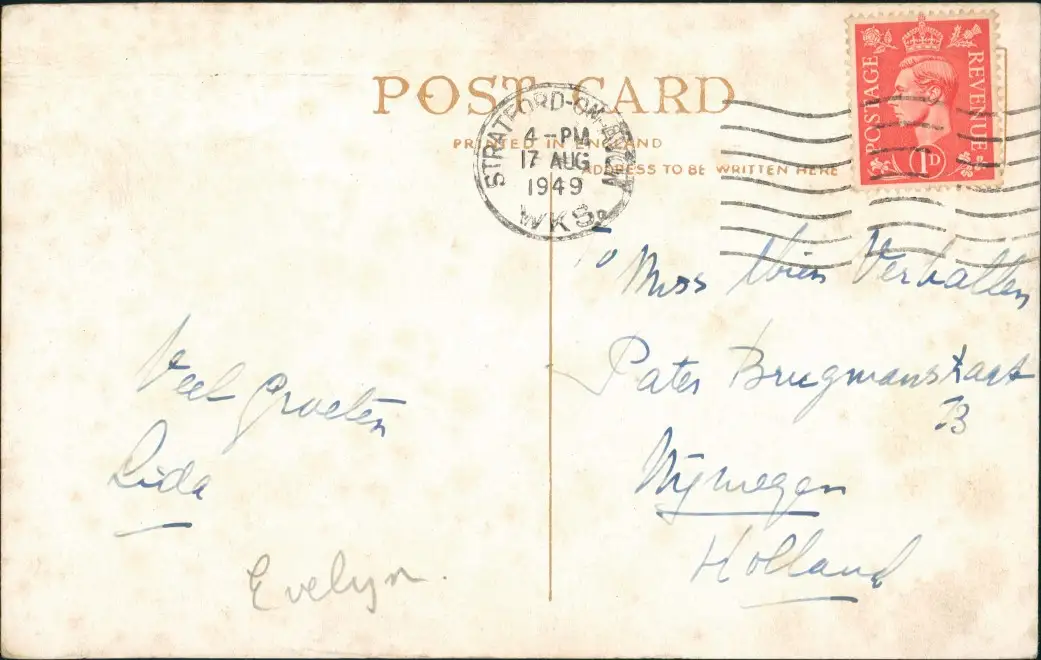 POST CARD
PRINTED IN ENGLAND
ADDRESS TO BE WRITTEN HERE
STRATFORD-ON-AVON
4-PM
17 AUG
1949
WKS
POSTAGE
REVENUE
1D
To Miss Wien Verhallen
Pater Brugmanstraat
Nijmegen
Holland
Veel groeten
Lida
Evelyn.